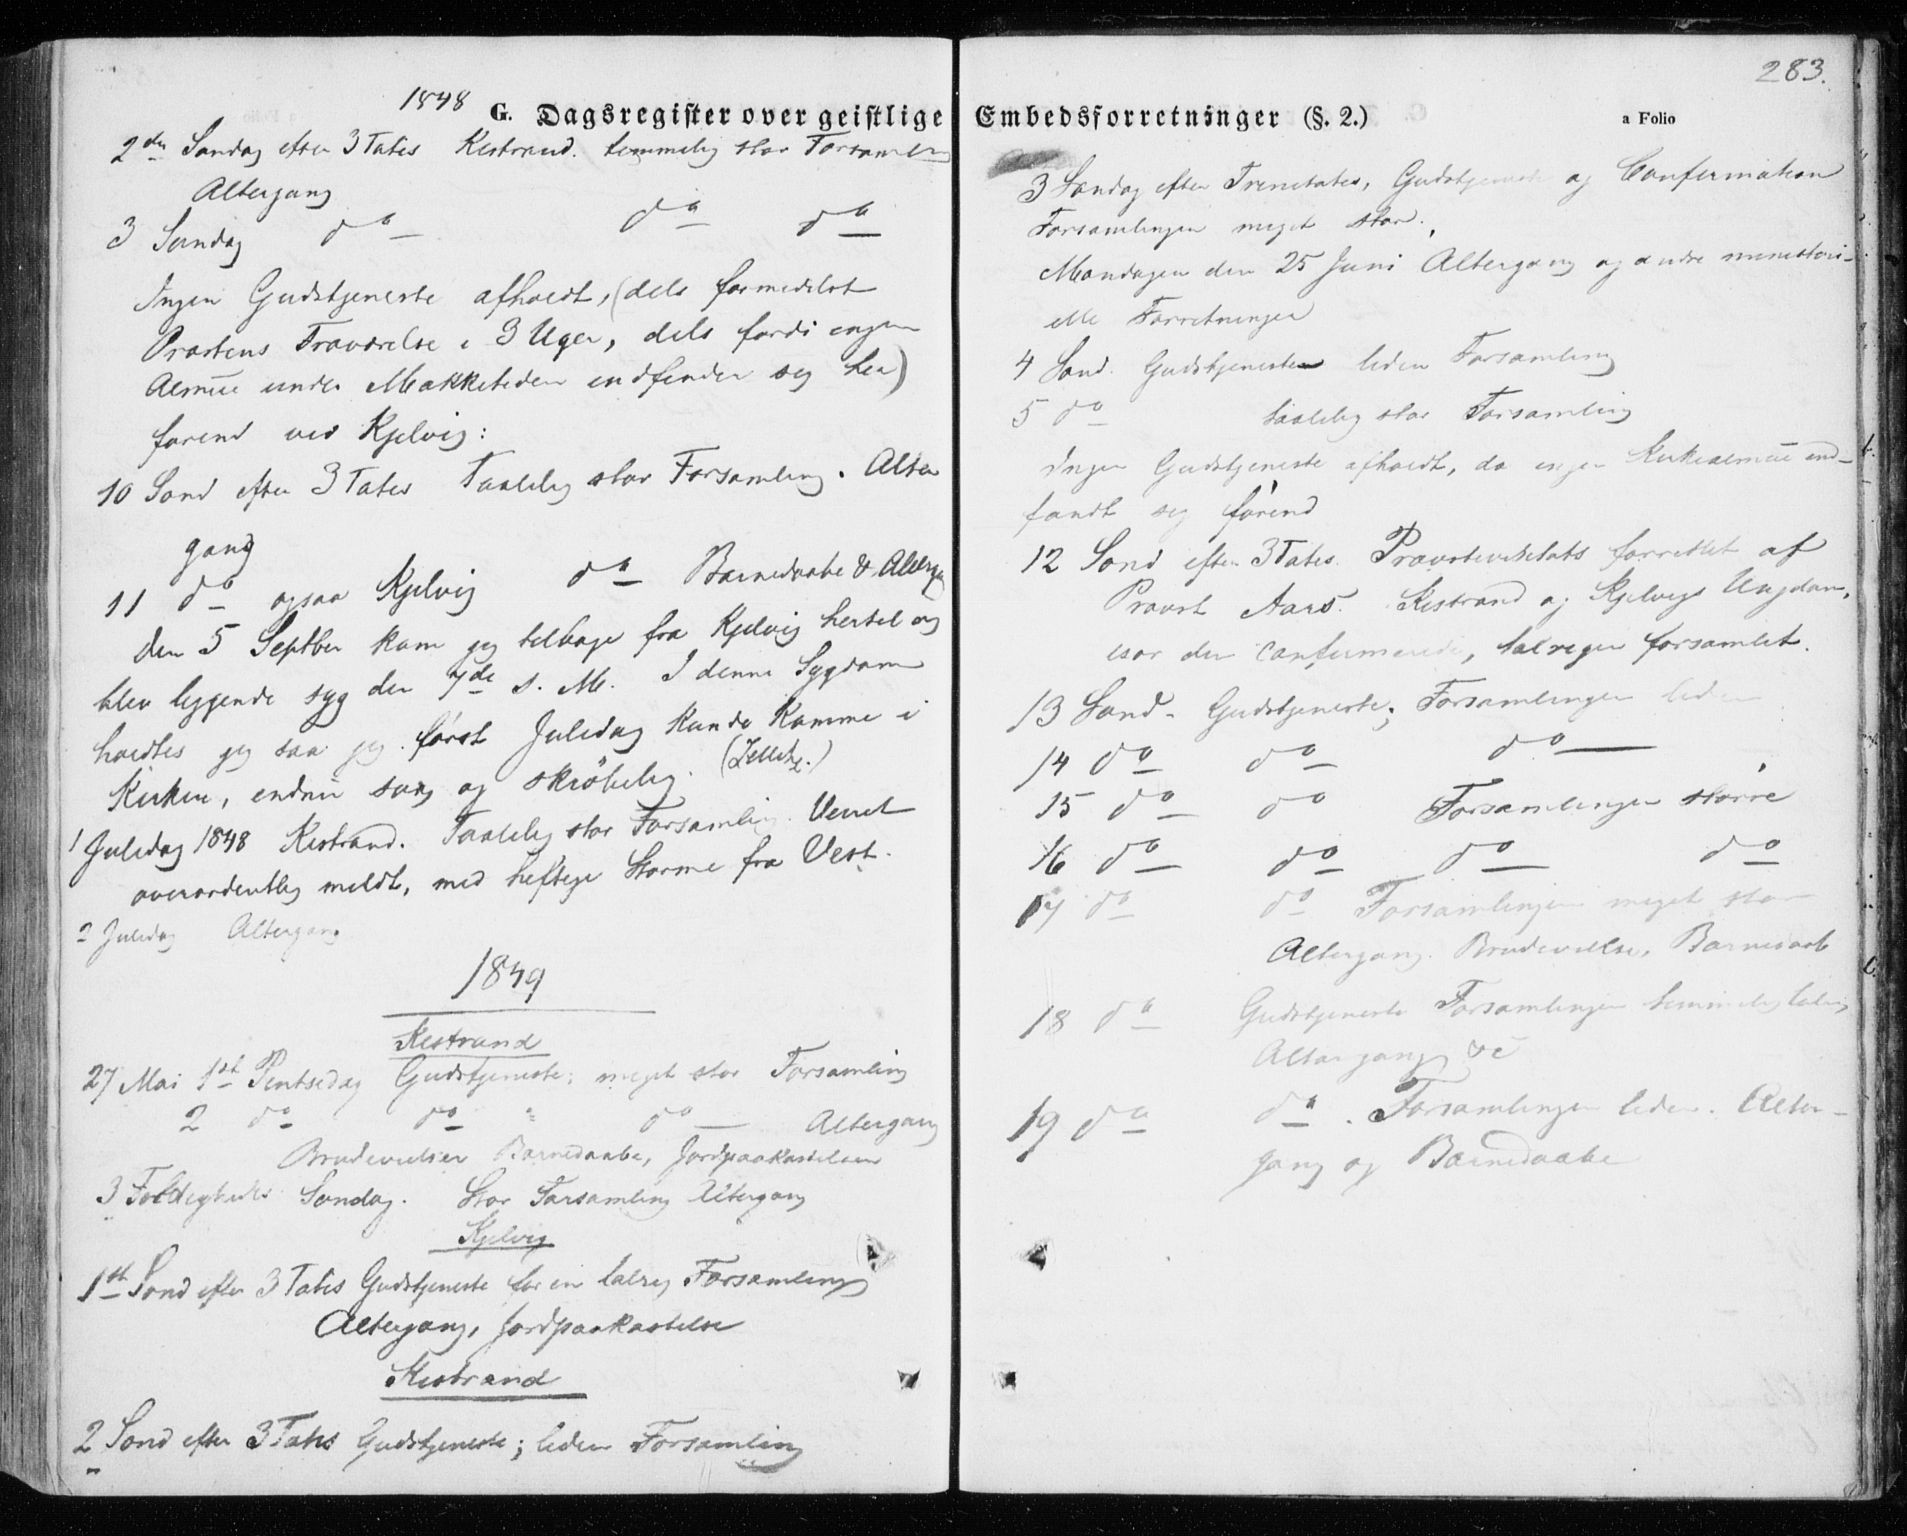 1848
G. Dagsregister over geistlige Embedsforretninger (§. 2.)
a Folio
283.
2den Søndag efter 3Tatis Kistrand. temmelig stor Forsamling
Altergang
3 Søndag do do do
Ingen Gudstjeneste afholdt, (dels formedelst
Præstens Fraværelse i 3 Uger, dels fordi ingen
Almue under Makketiden indfinder sig her)
førend ved Kjelvig:
10 Sønd efter 3Tatis Taalelig stor Forsamling. Alter
gang
11 do ogsaa Kjelvig do Barnedaabe & Altergang
den 5 Septber kom jeg tilbage fra Kjelvig hertil og
blev liggende syg den 7de s. M. I denne Sygdom
holdtes jeg saa jeg først Juledag kunde komme i
Kirken, endnu svag og skrøbelig. (Zetlitz.)
1 Juledag 1848 Kistrand. Taalelig stor Forsamling. Veiret
overordentlig mildt, med heftige Storme fra Vest.
2 Juledag Altergang
1849
Kistrand
27 Mai 1st Pintsedag Gudstjeneste; meget stor Forsamling
2 do do " do Altergang
Brudevielser Barnedaabe, Jordpaakastelser
3 Foldigheds Søndag. Stor Forsamling Altergang
Kjelvig
1st Sønd efter 3Tatis Gudstjeneste for en talrig Forsamling
Altergang, Jordpaakastelse
Kistrand
2 Sønd efter 3Tatis Gudstjeneste; liden Forsamling
3 Søndag efter Trinitatis, Gudstjeneste og Confirmation
Forsamlingen meget stor.
Mandagen den 25 Juni Altergang og andre ministeri-
elle Forretninger
4 Sønd. Gudstjeneste liden Forsamling
5 do taalelig stor Forsamling
Ingen Gudstjeneste afholdt, da ingen Kirkealmue ind-
fandt sig førend
12 Sønd efter 3Tatis. Provstevisitats forrettet af
Provst Aars. Kistrand og Kjelvigs Ungdom,
især den confirmerede, talrigen forsamlet.
13 Sønd. Gudstjeneste; Forsamlingen liden
14 do do do
15 do do Forsamlingen større
16 do do do do
17 do do Forsamlingen meget stor
Altergang. Brudevielse, Barnedaab
18 do Gudstjeneste Forsamlingen temmelig talrig
Altergang &c
19 do do. Forsamlingen liden. Alter-
gang og Barnedaabe